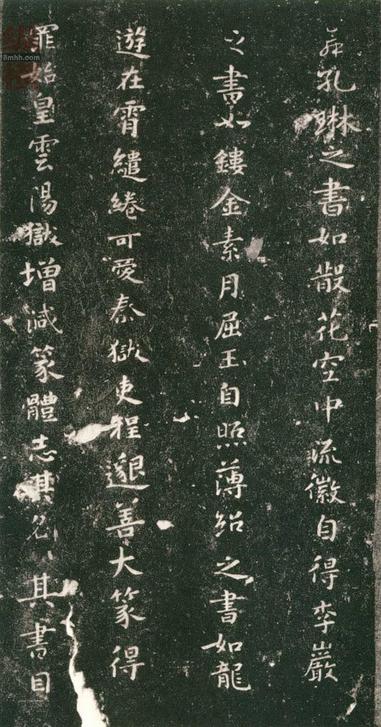 孔琳之書如散花空中流徽自得李巖
之書如鏤金素月屈玉自照薄紹之書如龍
遊在霄繾綣可愛秦獄吏程邈善大篆得
罪始皇雲陽獄增減篆體志其名其書曰
8mhh.com